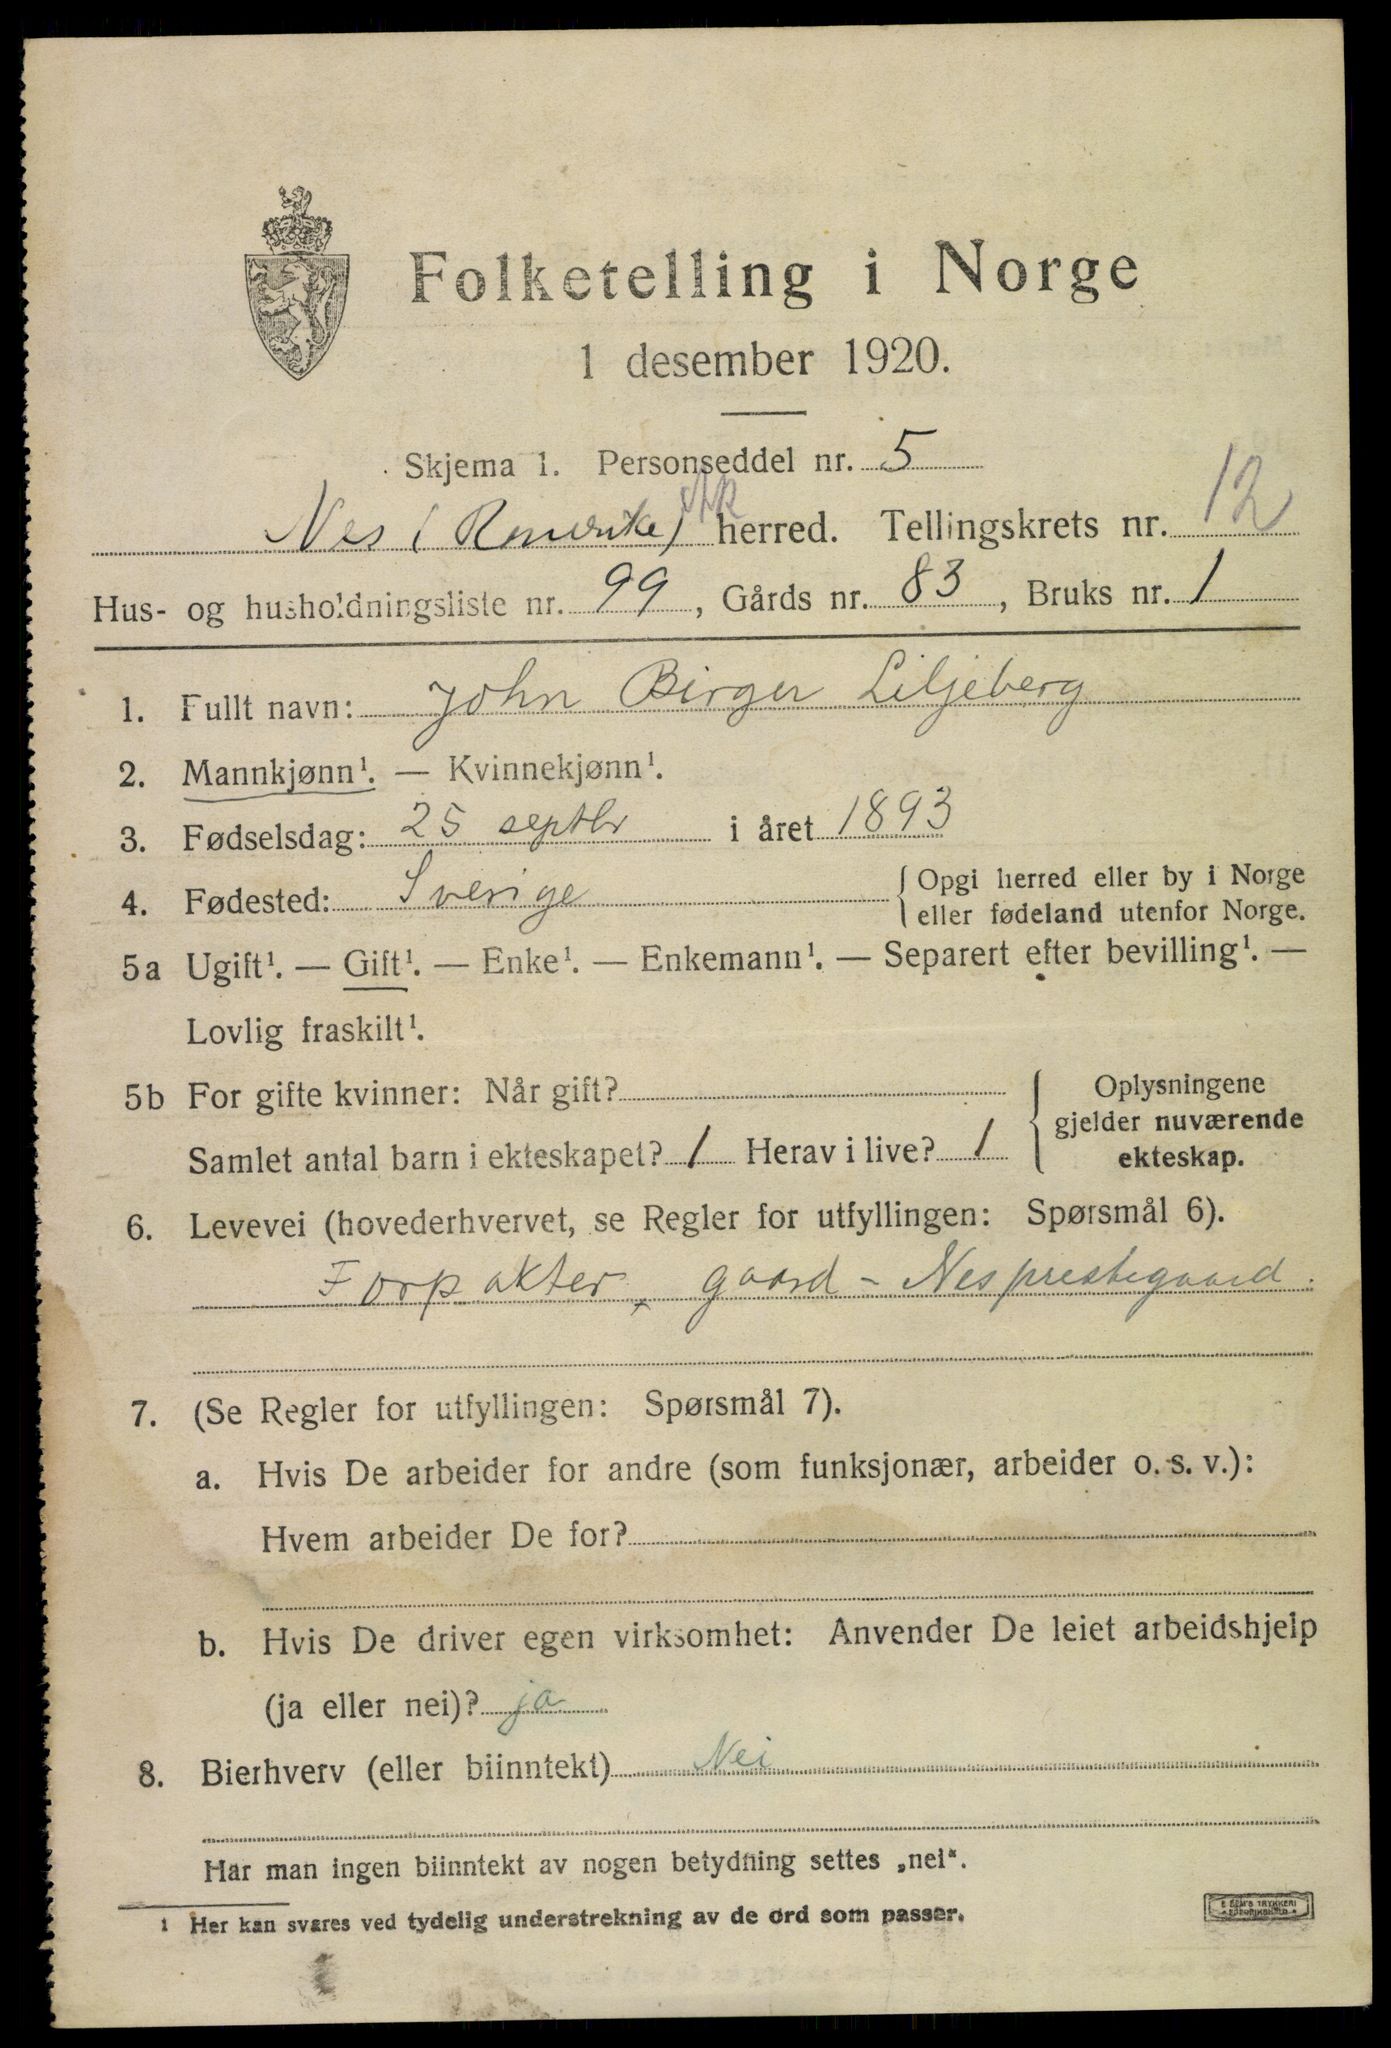 Folketelling i Norge
1 desember 1920.
Skjema 1. Personseddel nr. 5
Nes (Romerike) AK herred. Tellingskrets nr. 12
Hus- og husholdningsliste nr. 99, Gårds nr. 83, Bruks nr. 1
1. Fullt navn: John Birger Liljeberg
2. Mannkjønn¹. — Kvinnekjønn¹.
3. Fødselsdag: 25 septbr i året 1893
4. Fødested: Sverige { Opgi herred eller by i Norge
eller fødeland utenfor Norge.
5a Ugift¹. — Gift¹. — Enke¹. — Enkemann¹. — Separert efter bevilling¹. —
Lovlig fraskilt¹.
5b For gifte kvinner: Når gift? { Oplysningene
gjelder nuværende
Samlet antal barn i ekteskapet? 1 Herav i live? 1
ekteskap.
6. Levevei (hovederhvervet, se Regler for utfyllingen: Spørsmål 6).
Forpakter, gaard - Nes prestegaard.
7. (Se Regler for utfyllingen: Spørsmål 7).
a. Hvis De arbeider for andre (som funksjonær, arbeider o. s. v.):
Hvem arbeider De for?
b. Hvis De driver egen virksomhet: Anvender De leiet arbeidshjelp
(ja eller nei)? ja
8. Bierhverv (eller biinntekt) Nei
Har man ingen biinntekt av nogen betydning settes „nei“.
1 Her kan svares ved tydelig understrekning av de ord som passer.
E SEM'S TRYKKERI
FREDRIKSHALD